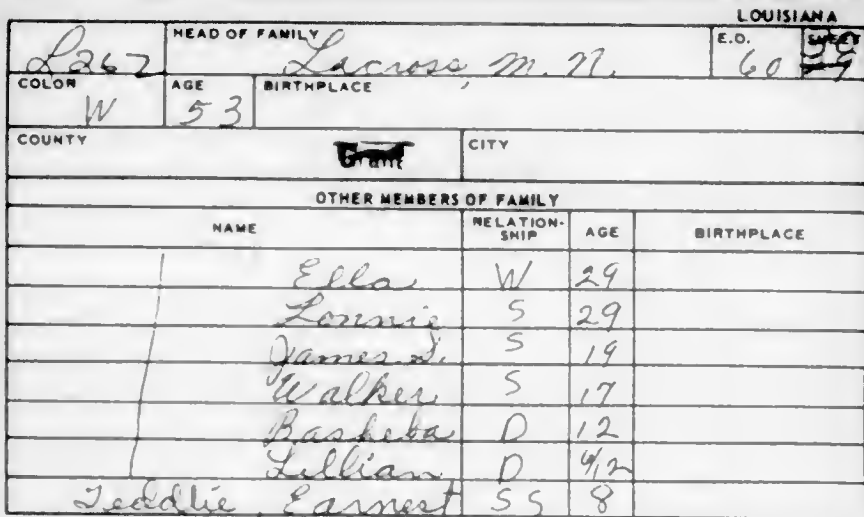 LOUISIANA
L267 HEAD OF FAMILY Lacross, M. N. E.D. 60
COLOR W AGE 53 BIRTHPLACE
COUNTY CITY
OTHER MEMBERS OF FAMILY
NAME RELATION-SHIP AGE BIRTHPLACE
Ella W 29
Lonnie S 29
James S. S 19
Walker S 17
Basheba D 12
Lillian D 4/12
Teddlie, Earnest SS 8